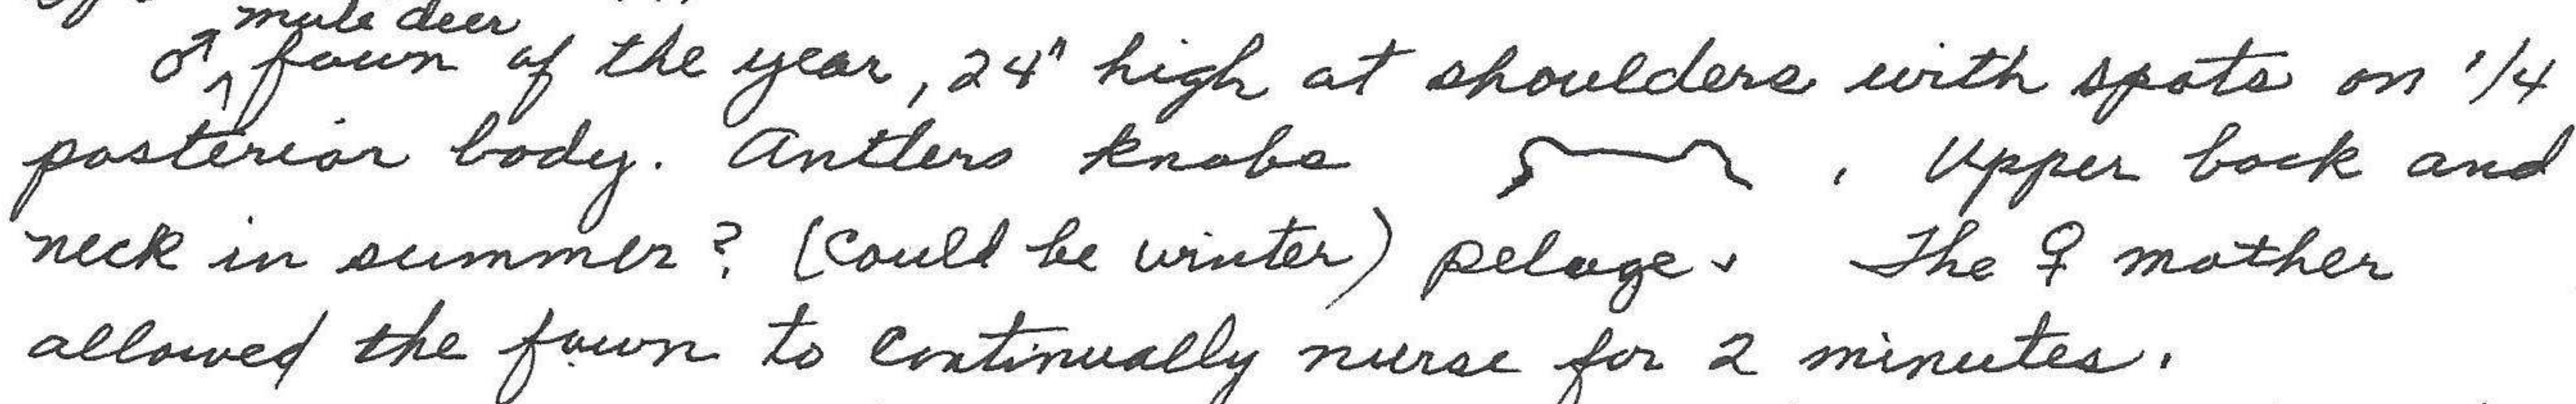 mule deer
♂ ^ fawn of the year, 24" high at shoulders with spots on 1/4
posterior body. Antlers knobs . Upper back and
neck in summer? (Could be winter) pelage. The ♀ mother
allowed the fawn to continually nurse for 2 minutes.